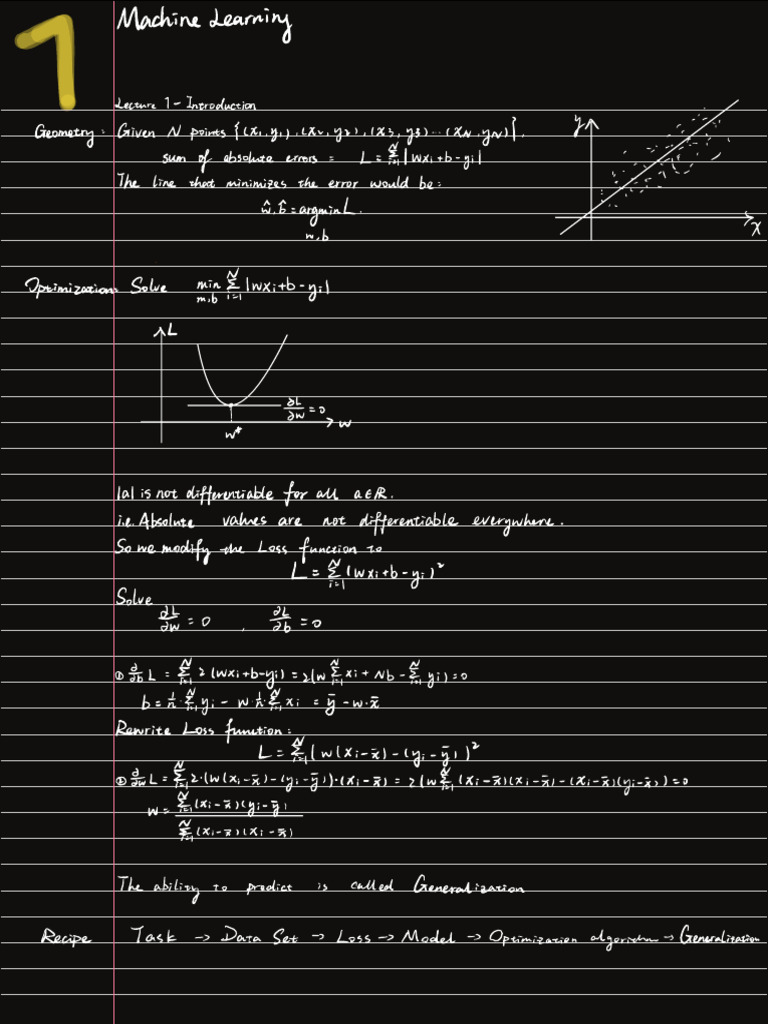 1
Machine Learning
Lecture 1 - Introduction
Geometry: Given N points {(x₁,y₁),(x₂,y₂),(x₃,y₃)...(x_N,y_N)},
sum of absolute errors: L = Σ_{i=1}^{N} |wx_i+b-y_i|
The line that minimizes the error would be:
ŵ,b̂ = argmin L.
w,b
y
x
Optimization: Solve min_{m,b} Σ_{i=1}^{N} |wx_i+b-y_i|
L
∂L/∂w = 0
w
w*
|a| is not differentiable for all a∈ℝ.
i.e. Absolute values are not differentiable everywhere.
So we modify the Loss function to
L = Σ_{i=1}^{N} (wx_i+b-y_i)²
Solve
∂L/∂w = 0 , ∂L/∂b = 0
① ∂/∂b L = Σ_{i=1}^{N} 2(wx_i+b-y_i) = 2(w Σ_{i=1}^{N} x_i + Nb - Σ_{i=1}^{N} y_i) = 0
b = 1/n · Σ_{i=1}^{N} y_i - w · 1/n Σ_{i=1}^{N} x_i = ȳ - w·x̄
Rewrite Loss function:
L = Σ_{i=1}^{N} (w(x_i-x̄) - (y_i-ȳ))²
② ∂/∂w L = Σ_{i=1}^{N} 2·(w(x_i-x̄)-(y_i-ȳ))·(x_i-x̄) = 2(w Σ_{i=1}^{N} (x_i-x̄)(x_i-x̄) - (x_i-x̄)(y_i-x̄)) = 0
w = Σ_{i=1}^{N} (x_i-x̄)(y_i-ȳ) / Σ_{i=1}^{N} (x_i-x̄)(x_i-x̄)
The ability to predict is called Generalization
Recipe Task → Data Set → Loss → Model → Optimization algorithm → Generalization